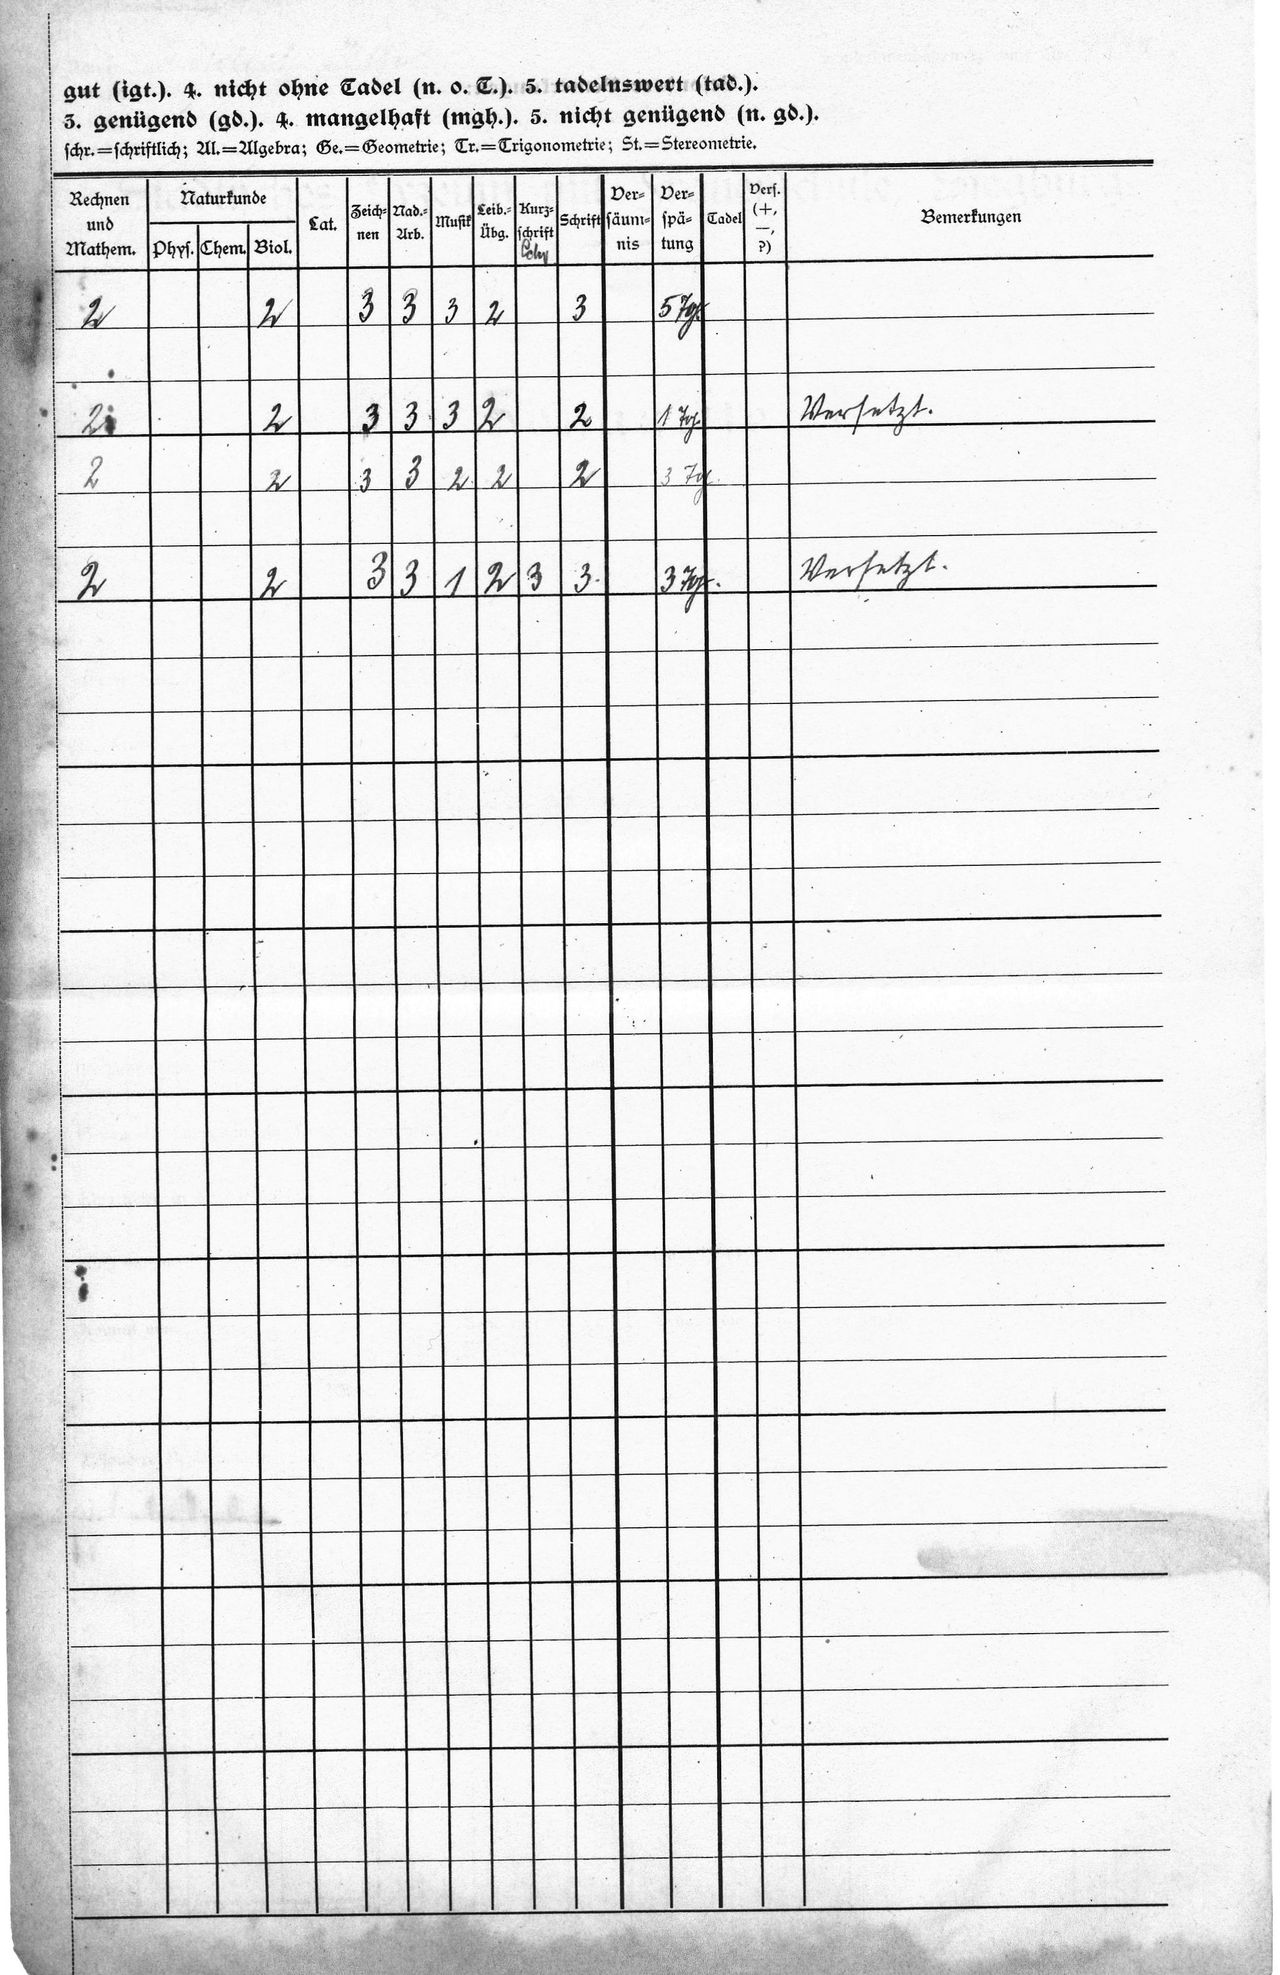 gut (igt.). 4. nicht ohne Tadel (n. o. T.). 5. tadelnswert (tad.).
3. genügend (gd.). 4. mangelhaft (mgh.). 5. nicht genügend (n. gd.).
schr.=schriftlich; Al.=Algebra; Ge.=Geometrie; Tr.=Trigonometrie; St.=Stereometrie.
Rechnen und Mathem. Naturkunde Phys. Chem. Biol. Lat. Zeich-nen Nad.-Arb. Musik Leib.-Übg. Kurz-schrift Schrift Ver-säum-nis Ver-spä-tung Tadel Vers. (+, —, ?) Bemerkungen
2 2 3 3 3 2 3 5 Tg.
2 2 3 3 3 2 2 1 Tg. Versetzt.
2 2 3 3 2 2 2 3 Tg.
2 2 3 3 1 2 3 3. 3 Tg. Versetzt.